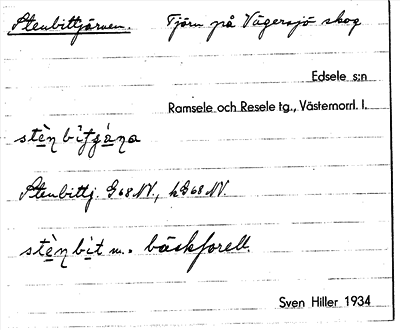 Stenbittjärnen. Tjärn på Vägersjö skog
Edsele s:n
Ramsele och Resele tg., Västernorrl. l.
stèn bitjä̀ṇa
Stenbittj. G 68 NV., hG 68 NV.
stèṇbit m. bäckforell.
Sven Hiller 1934